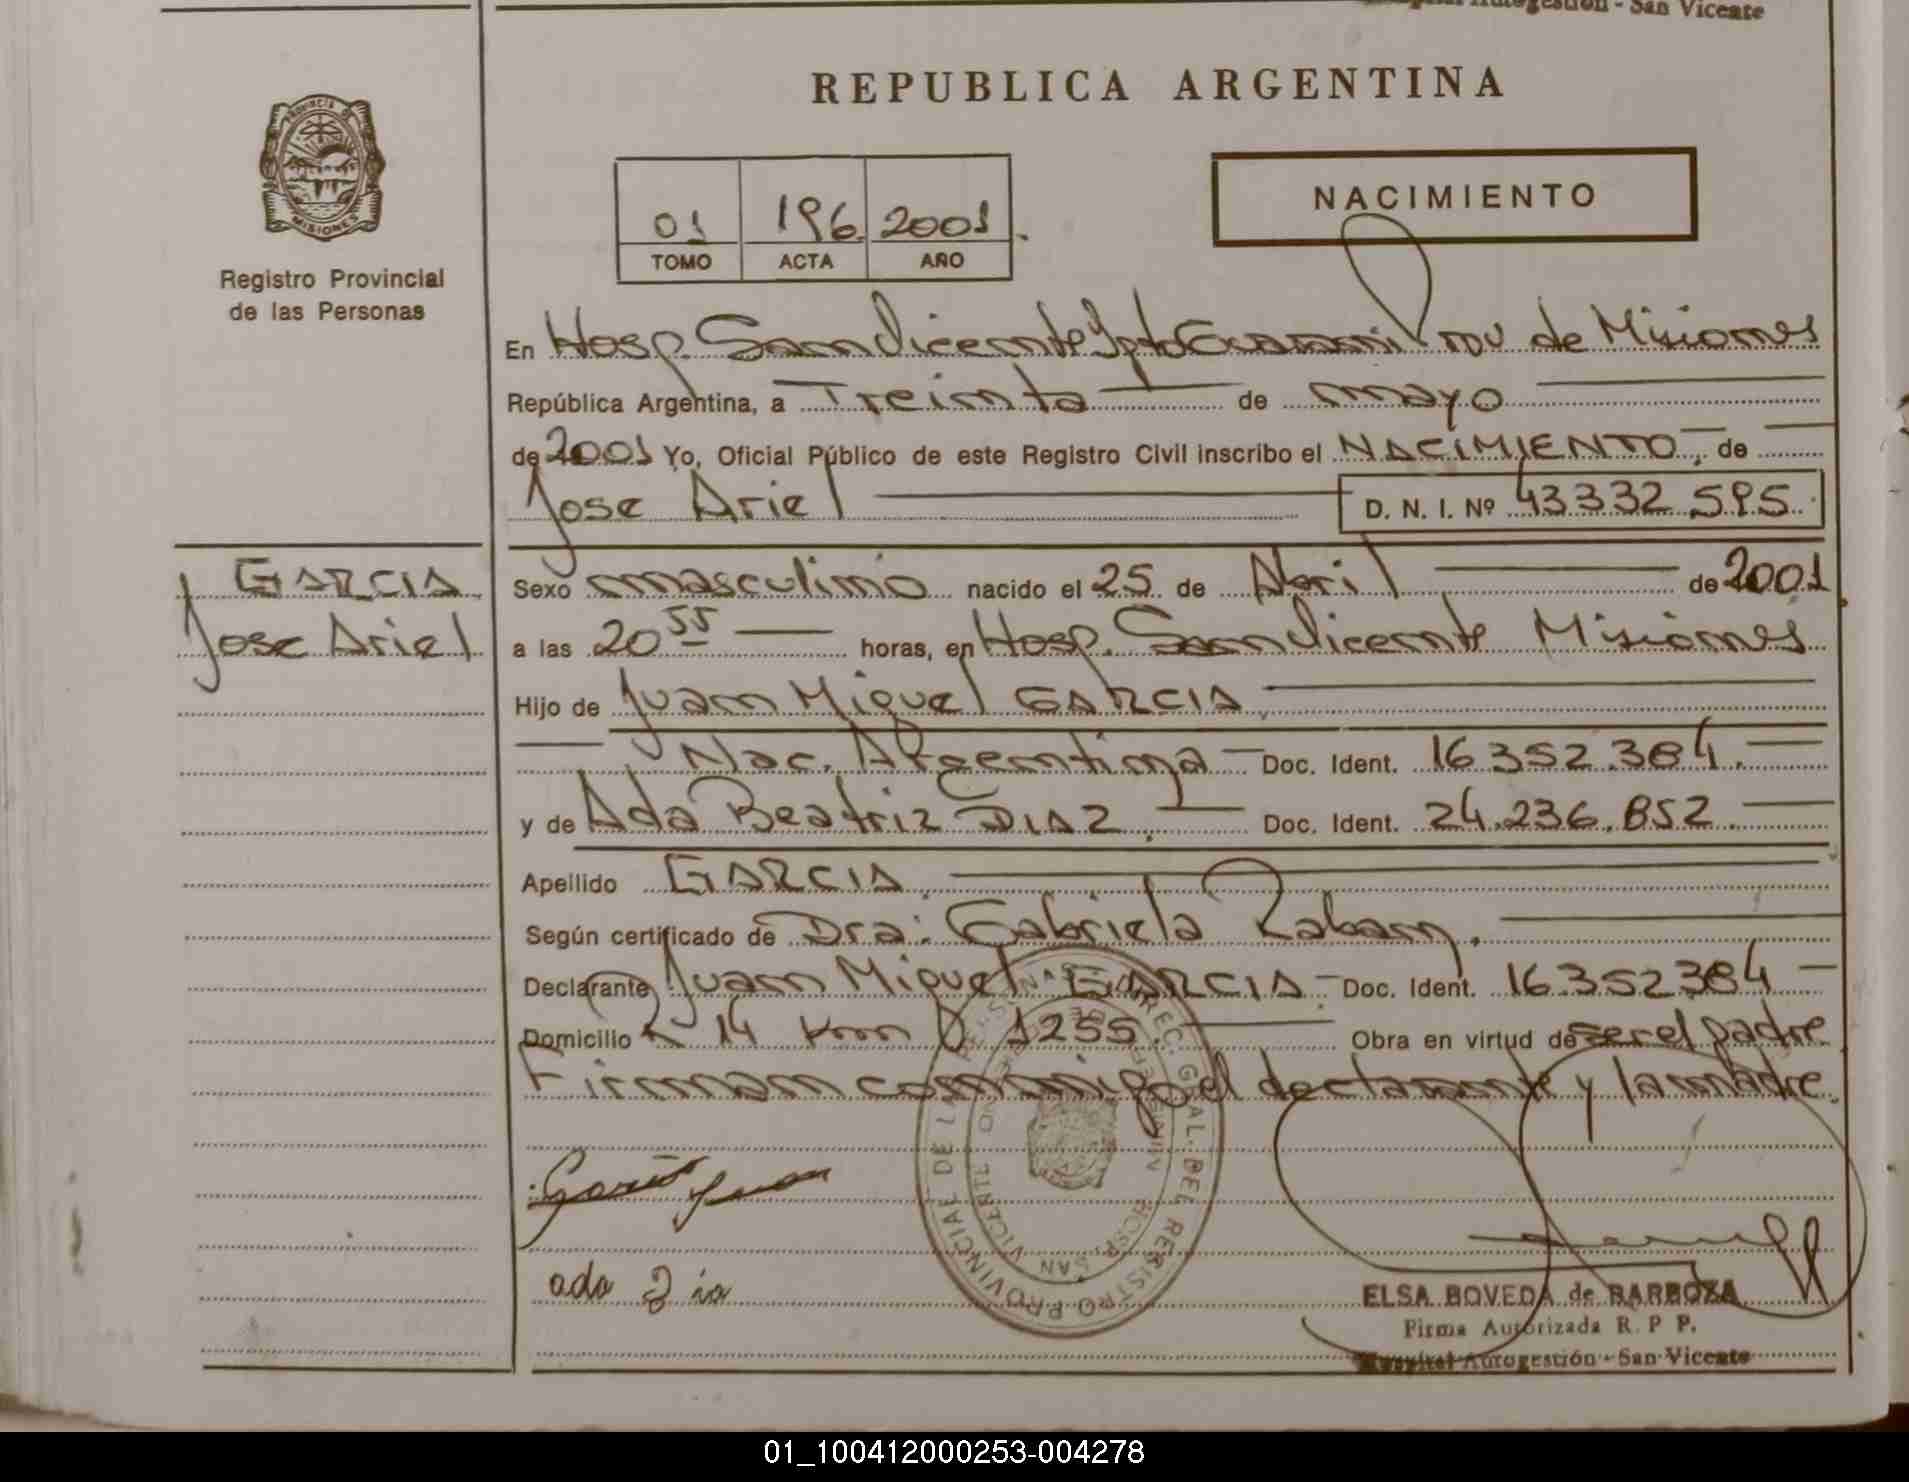 Hospital Autogestión - San Vicente
REPUBLICA ARGENTINA
PROVINCIA DE
MISIONES
Registro Provincial
de las Personas
01 196 2001
TOMO ACTA AÑO
NACIMIENTO
En Hosp. San Vicente Dpto Guarani Prov de Misiones
República Argentina, a Treinta de mayo
de 2001 Yo, Oficial Público de este Registro Civil inscribo el NACIMIENTO, de
Jose Ariel D. N. I. Nº 43332595
GARCIA
Jose Ariel
Sexo masculino nacido el 25 de Abril de 2001
a las 20 55 horas, en Hosp. San Vicente Misiones
Hijo de Juan Miguel GARCIA
Nac. Argentina Doc. Ident. 16352.384
y de Ada Beatriz DIAZ. Doc. Ident. 24.236.852
Apellido GARCIA
Según certificado de Dra: Gabriela
Declarante Juan Miguel GARCIA Doc. Ident. 16352384
Domicilio R 14 Km 1255. Obra en virtud de ser el padre
Firman conmigo el declarante y la madre.
Garcia Juan
ada Dia
REGISTRO PROVINCIAL DE LAS PERSONAS DIREC. GRAL. DEL
HOSP. SAN VICENTE
ELSA BOVEDA de BARBOZA
Firma Autorizada R. P P.
Hospital Autogestión - San Vicente
01_100412000253-004278